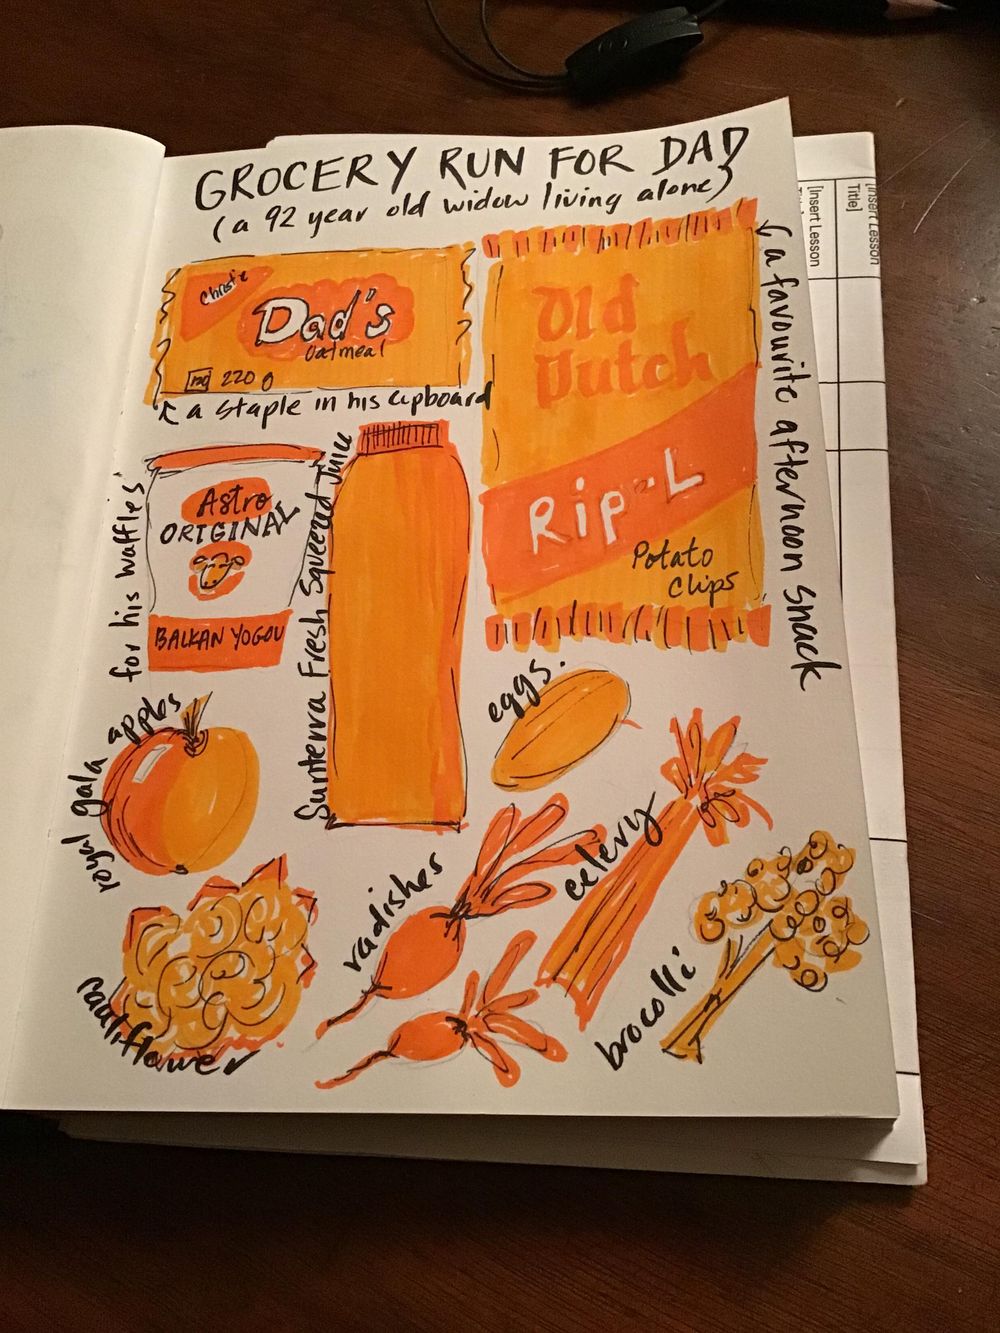 GROCERY RUN FOR DAD
(a 92 year old widow living alone)
Christie
Dad's
oatmeal
220 g
↖ a staple in his cupboard
Old
Dutch
Rip-L
Potato
Chips
↖ (a favourite afternoon snack
for his waffles
Astro
ORIGINAL
BALKAN YOGOU
Sunterra Fresh Squeezed Juice
royal gala apples
eggs.
cauliflower
radishes
celery
brocolli
[Insert Lesson
Title]
[Insert Lesson